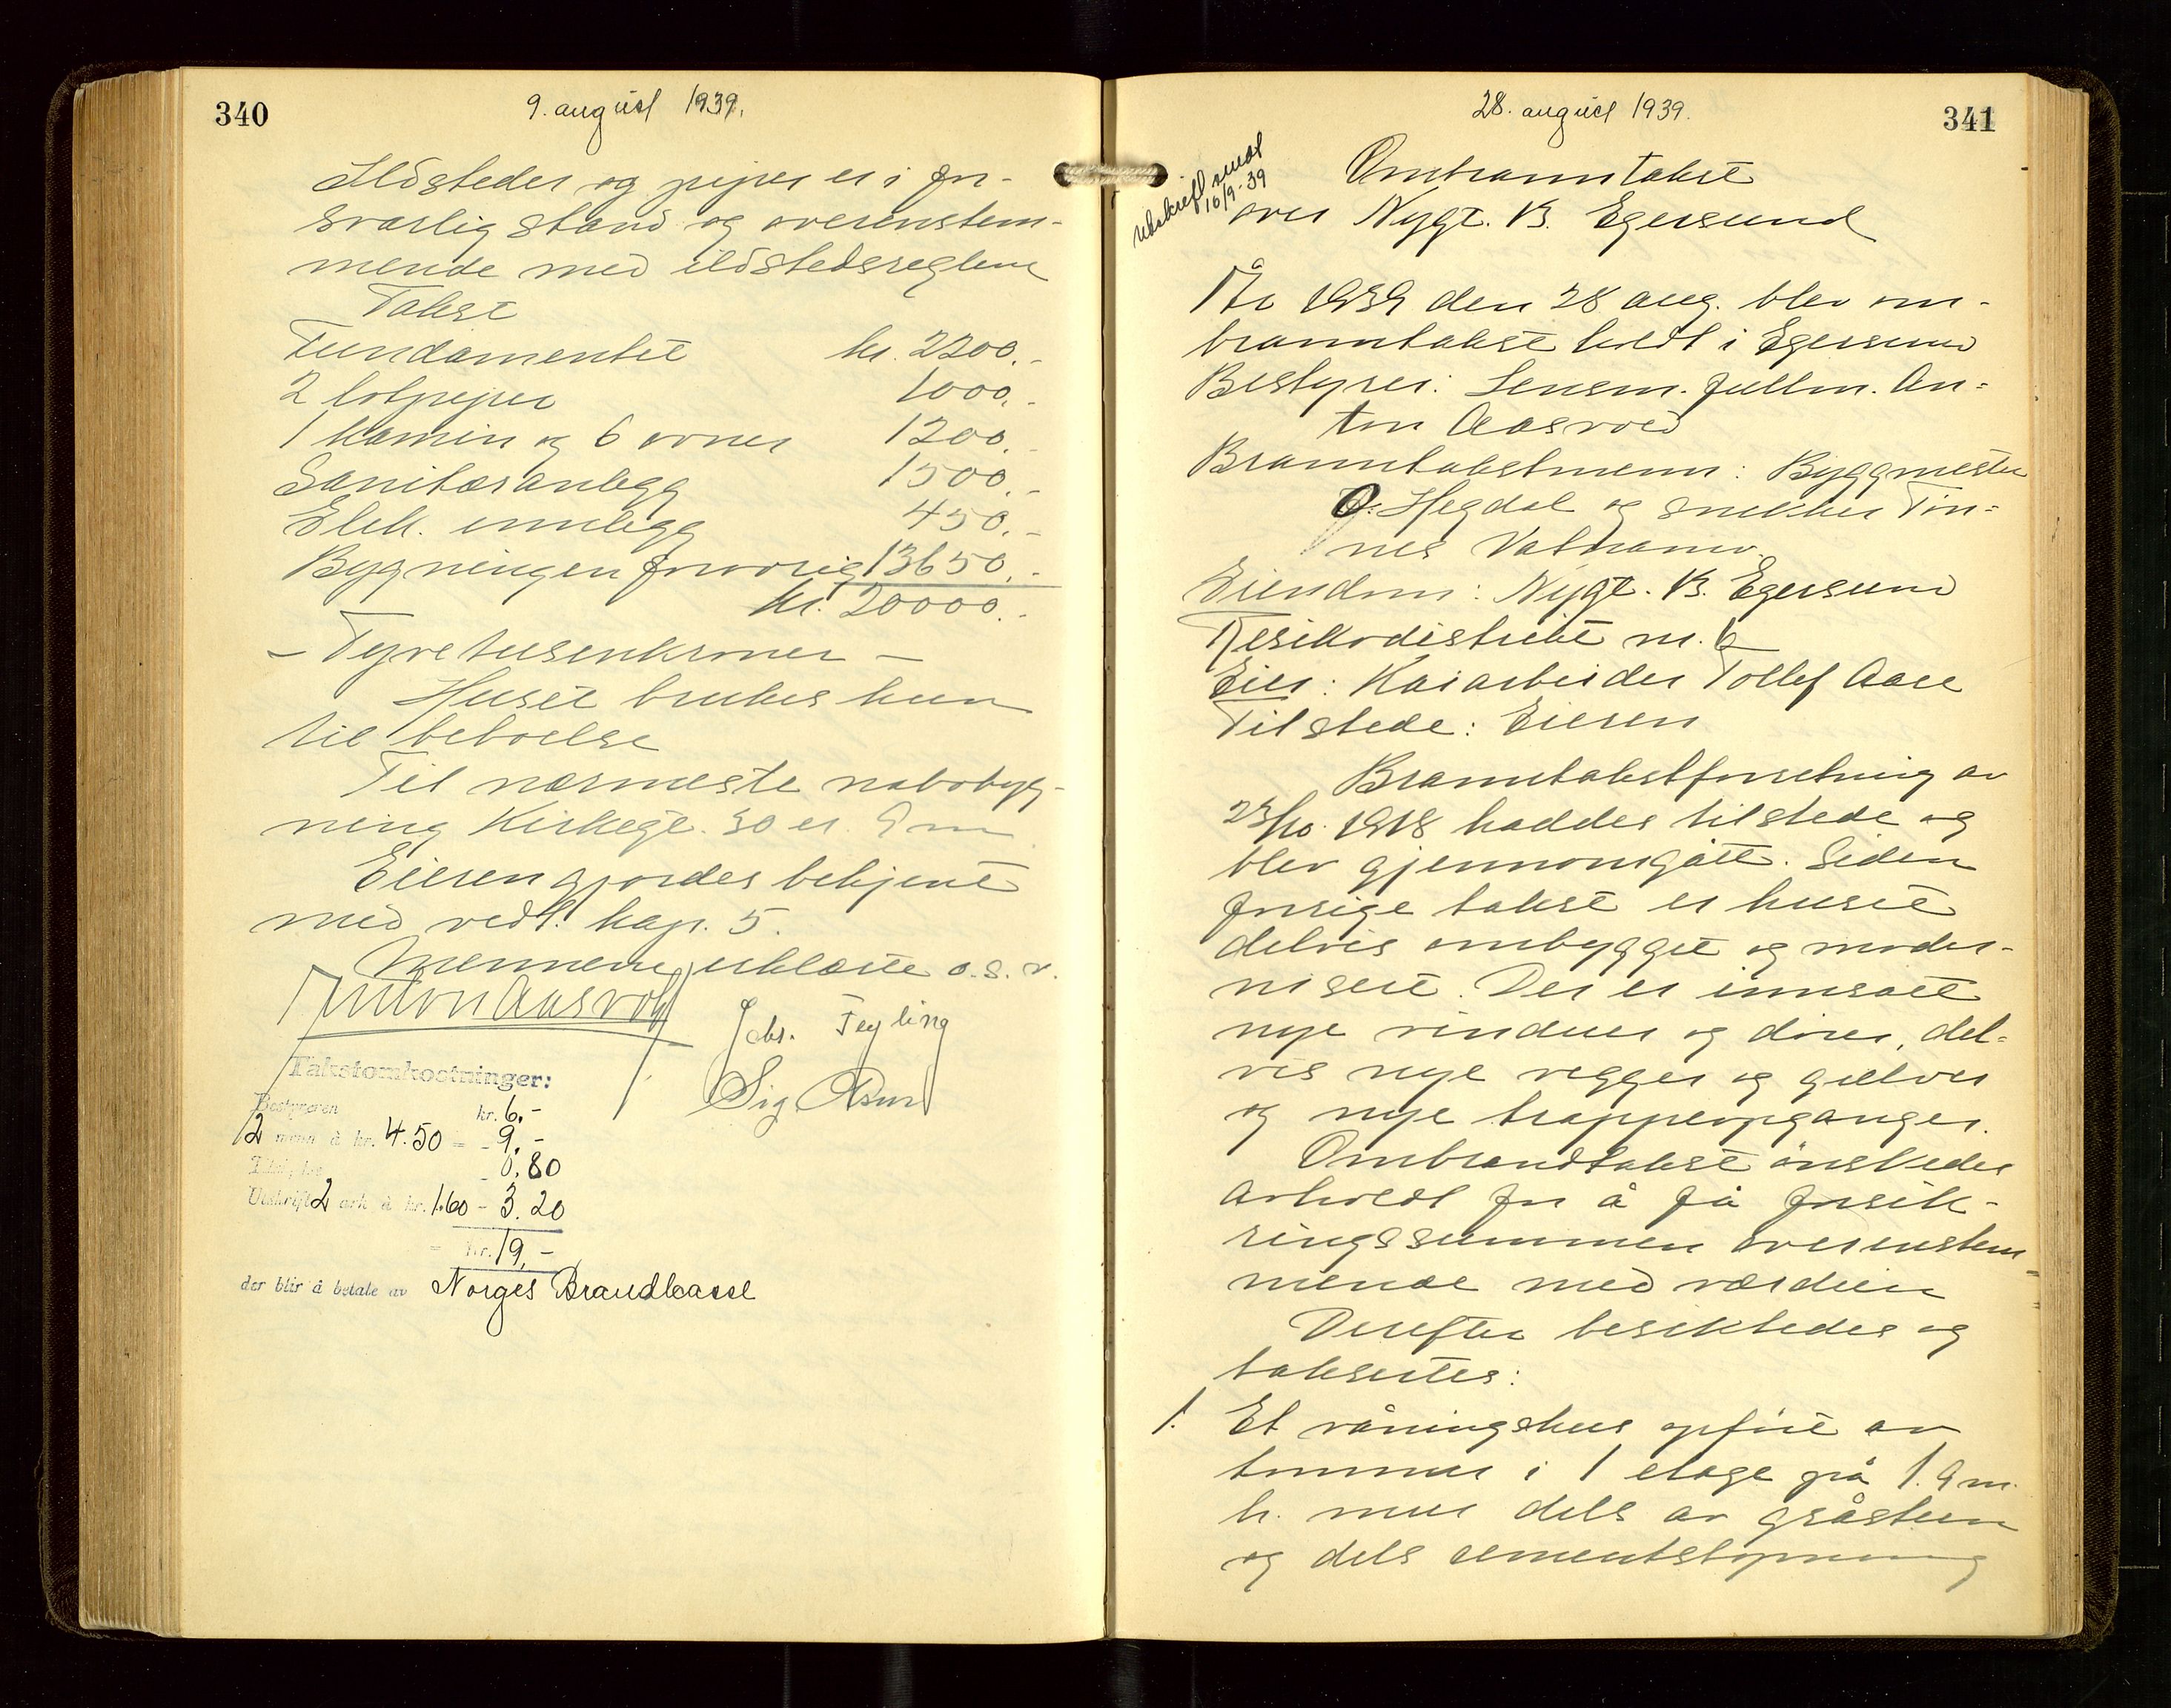 340
9. august 1939.
Ildsteder og piper er i for-
svarlig stand og overenstem-
mende med ildstedsreglene
Takst
Fundamentet kr. 2200.-
2 lotpiper 1000.-
1 kamin og 6 ovner 1200.-
Sanitæranlegg 1500.-
Elek. innlegg 450.-
Bygningen forøvrig 13650.-
kr. 20000.-
- Tyvetusenkroner -
Huset brukes kun
til beboelse
Til nærmeste nabobyg-
ning Kirkegt. 30 er 9 m
Eieren gjordes bekjent
med vedt. kap. 5.
Mennene erklærte o.s.v.
Anton Aasvold
Johs. Feyling
Sig. Osen
Takstomkostninger:
Bestyreren kr. 6,-
2 menn à kr. 4.50 = - 9,-
- 0,80
Utskrift 2 ark à kr. 1.60 - 3.20
= kr. 19,-
der blir å betale av Norges Brandkasse
28. august 1939.
341
Utskrift sendt
16/9-39
Ombranntakst
over Nygt. 13. Egersund
År 1939 den 28 aug. blev om-
branntakst holdt i Egersund
Bestyrer: Lensm. fullm. An-
ton Aasvold
Branntakstmenn: Byggmester
O. Hegdal og snekker Tøn-
nes Vatland.
Eiendom: Nygt. 13. Egersund
Risikodistrikt nr. 6
Eier: Kaiarbeider Tollef Aase
Tilstede: Eieren
Branntakstforretning av
23/10. 1918 haddes tilstede og
blev gjennomgått. Siden
forrige takst er huset
delvis ombygget og moder-
nisert. Der er innsatt
nye vinduer og dører, del-
vis nye vegger og gulver
og nye trappeopganger.
Ombrandtakst ønskedes
avholdt for å få forsik-
ringssummen overenstem-
mende med værdien
Derefter besiktedes og
takseres:
1. Et våningshus opført av
tømmer i 1 etage på 1.9 m.
h. mur dels av gråsten
og dels sementstøpning